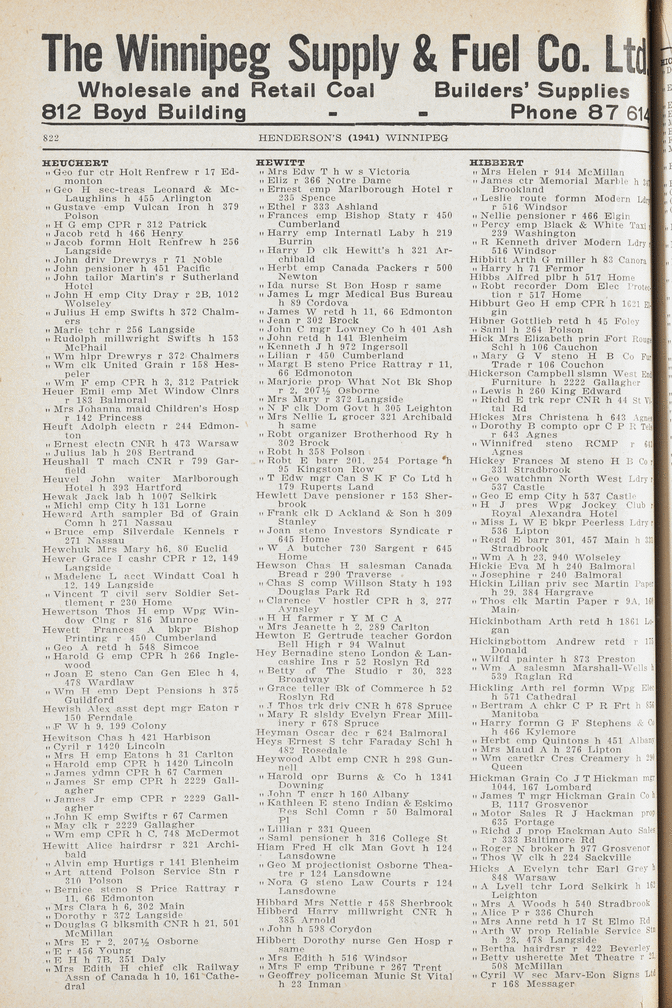 The Winnipeg Supply & Fuel Co. Ltd.
Wholesale and Retail Coal Builders' Supplies
812 Boyd Building - - Phone 87 614
822 HENDERSON'S (1941) WINNIPEG
HEUCHERT
" Geo fur ctr Holt Renfrew r 17 Ed-
monton
" Geo H sec-treas Leonard & Mc-
Laughlins h 455 Arlington
" Gustave emp Vulcan Iron h 379
Polson
" H G emp CPR r 312 Patrick
" Jacob retd h 466 Henry
" Jacob formn Holt Renfrew h 256
Langside
" John driv Drewrys r 71 Noble
" John pensioner h 451 Pacific
" John tailor Martin's r Sutherland
Hotel
" John H emp City Dray r 2B, 1012
Wolseley
" Julius H emp Swifts h 372 Chalm-
ers
" Marie tchr r 256 Langside
" Rudolph millwright Swifts h 153
McPhail
" Wm hlpr Drewrys r 372 Chalmers
" Wm clk United Grain r 158 Hes-
peler
" Wm F emp CPR h 3, 312 Patrick
Heuer Emil emp Met Window Clnrs
r 183 Balmoral
" Mrs Johanna maid Children's Hosp
r 142 Princess
Heuft Adolph electn r 244 Edmon-
ton
" Ernest electn CNR h 473 Warsaw
" Julius lab h 208 Bertrand
Heushall T mach CNR r 799 Gar-
field
Heuvel John waiter Marlborough
Hotel h 393 Hartford
Hewak Jack lab h 1007 Selkirk
" Michl emp City h 131 Lorne
Heward Arth sampler Bd of Grain
Comn h 271 Nassau
" Bruce emp Silverdale Kennels r
271 Nassau
Hewchuk Mrs Mary h6, 80 Euclid
Hewer Grace I cashr CPR r 12, 149
Langside
" Madelene L acct Windatt Coal h
12, 149 Langside
" Vincent T civil serv Soldier Set-
tlement r 230 Home
Hewertson Thos H emp Wpg Win-
dow Clng r 816 Munroe
Hewett Frances A bkpr Bishop
Printing r 450 Cumberland
" Geo A retd h 548 Simcoe
" Harold G emp CPR h 266 Ingle-
wood
" Joan E steno Can Gen Elec h 4,
478 Wardlaw
" Wm H emp Dept Pensions h 375
Guildford
Hewish Alex asst dept mgr Eaton r
150 Ferndale
" F W h 9, 199 Colony
Hewitson Chas h 421 Harbison
" Cyril r 1420 Lincoln
" Mrs H emp Eatons h 31 Carlton
" Harold emp CPR h 1420 Lincoln
" James ydmn CPR h 67 Carmen
" James Sr emp CPR h 2229 Gall-
agher
" James Jr emp CPR r 2229 Gall-
agher
" John K emp Swifts r 67 Carmen
" May clk r 2229 Gallagher
" Wm emp CPR h C, 748 McDermot
Hewitt Alice hairdrsr r 321 Archi-
bald
" Alvin emp Hurtigs r 141 Blenheim
" Art attend Police Service Stn r
310 Polson
" Bernice steno S Price Rattray r
11, 66 Edmonton
" Mrs Clara h 6, 302 Main
" Dorothy r 372 Langside
" Douglas G blksmith CNR h 21, 501
McMillan
" Mrs E r 2, 207½ Osborne
" E r 456 Young
" E H h 7B, 351 Daly
" Mrs Edith H chief clk Railway
Assn of Canada h 10, 161 Cathe-
dral
HEWITT
" Mrs Edw T h w s Victoria
" Eliz r 366 Notre Dame
" Ernest emp Marlborough Hotel r
235 Spence
" Ethel r 333 Ashland
" Frances emp Bishop Staty r 450
Cumberland
" Harry emp Internatl Laby h 219
Burrin
" Harry D clk Hewitt's h 321 Ar-
chibald
" Herbt emp Canada Packers r 500
Newton
" Ida nurse St Bon Hosp r same
" James L mgr Medical Bus Bureau
h 89 Cordova
" James W retd h 11, 66 Edmonton
" Jean r 302 Brock
" John C mgr Lowney Co h 401 Ash
" John retd h 141 Blenheim
" Kenneth J h 972 Ingersoll
" Lilian r 450 Cumberland
" Margt B steno Price Rattray r 11,
66 Edmonoton
" Marjorie prop What Not Bk Shop
r 2, 207½ Osborne
" Mrs Mary r 372 Langside
" N F clk Dom Govt h 305 Leighton
" Mrs Nellie L grocer 321 Archibald
h same
" Robt organizer Brotherhood Ry h
302 Brock
" Robt h 358 Polson
" Robt E barr 201, 254 Portage h
95 Kingston Row
" T Edw mgr Can S K F Co Ltd h
179 Ruperts Land
Hewlett Dave pensioner r 153 Sher-
brook
" Frank clk D Ackland & Son h 309
Stanley
" Joan steno Investors Syndicate r
645 Home
" W A butcher 730 Sargent r 645
Home
Hewson Chas H salesman Canada
Bread r 290 Traverse
" Chas S comp Willson Staty h 193
Douglas Park Rd
" Clarence V hostler CPR h 3, 277
Aynsley
" H H farmer r Y M C A
" Mrs Jeanette h 2, 289 Carlton
Hewton E Gertrude teacher Gordon
Bell High r 94 Walnut
Hey Bernadine steno London & Lan-
cashire Ins r 52 Roslyn Rd
" Betty of The Studio r 30, 323
Broadway
" Grace teller Bk of Commerce h 52
Roslyn Rd
" J Thos trk driv CNR h 678 Spruce
" Mary R slsldy Evelyn Frear Mill-
inery r 678 Spruce
Heyman Oscar dec r 624 Balmoral
Heys Ernest S tchr Faraday Schl h
482 Rosedale
Heywood Albt emp CNR h 298 Gun-
nell
" Harold opr Burns & Co h 1341
Downing
" John T engr h 160 Albany
" Kathleen E steno Indian & Eskimo
Res Schl Comn r 50 Balmoral
Pl
" Lillian r 331 Queen
" Saml pensioner h 316 College St
Hiam Fred H clk Man Govt h 124
Lansdowne
" Geo M projectionist Osborne Thea-
tre r 124 Lansdowne
" Nora G steno Law Courts r 124
Lansdowne
Hibbard Mrs Nettie r 458 Sherbrook
Hibberd Harry millwright CNR h
385 Arnold
" John h 598 Corydon
Hibbert Dorothy nurse Gen Hosp r
same
" Mrs Edith h 516 Windsor
" Mrs F emp Tribune r 267 Trent
" Geoffrey policeman Munic St Vital
h 23 Inman
HIBBERT
" Mrs Helen r 914 McMillan
" James ctr Memorial Marble h
Brookland
" Leslie route formn Modern Ldry
r 516 Windsor
" Nellie pensioner r 466 Elgin
" Percy emp Black & White Taxi
239 Washington
" R Kenneth driver Modern Ldry
516 Windsor
Hibbitt Arth G miller h 83 Canora
" Harry h 71 Fermor
Hibbs Alfred plbr h 517 Home
" Robt recorder Dom Elec Protec-
tion r 517 Home
Hibburt Geo H emp CPR h 1621 El-
gin
Hibner Gottlieb retd h 45 Foley
" Saml h 264 Polson
Hick Mrs Elizabeth prin Fort Rouge
Schl h 106 Cauchon
" Mary G V steno H B Co Fur
Trade r 106 Couchon
Hickerson Campbell slsmn West End
Furniture h 2222 Gallagher
" Lewis h 260 King Edward
" Richd E trk rpr CNR h 44 St Vi-
tal Rd
Hickes Mrs Christena h 643 Agnes
" Dorothy B compto opr C P R Tels
r 643 Agnes
" Winnifred steno RCMP r 643
Agnes
Hickey Frances M steno H B Co r
331 Stradbrook
" Geo watchman North West Ldry r
537 Castle
" Geo E emp City h 537 Castle
" H J pres Wpg Jockey Club r
Royal Alexandra Hotel
" Miss L W E bkpr Peerless Ldry r
536 Lipton
" Regd E barr 301, 457 Main h 331
Stradbrook
" Wm A h 23, 940 Wolseley
Hickie Eva M h 240 Balmoral
" Josephine r 240 Balmoral
Hickin Lilian priv sec Martin Paper
h 29, 384 Hargrave
" Thos clk Martin Paper r 9A,
Main
Hickinbotham Arth retd h 1861 Lo-
gan
Hickingbottom Andrew retd r
Donald
" Wilfd painter h 873 Preston
" Wm A salesmn Marshall-Wells h
539 Raglan Rd
Hickling Arth rel formn Wpg Elec
h 571 Cathedral
" Bertram A chkr C P R Frt h
Manitoba
" Harry formn G F Stephens & Co
h 466 Kylemore
" Herbt emp Quintons h 451 Albany
" Mrs Maud A h 276 Lipton
" Wm caretkr Cres Creamery h
Queen
Hickman Grain Co J T Hickman mgr
1044, 167 Lombard
" James T mgr Hickman Grain Co h
B, 1117 Grosvenor
" Motor Sales R J Hackman prop
635 Portage
" Richd J prop Hackman Auto Sales
r 333 Baltimore Rd
" Roger N broker h 977 Grosvenor
" Thos W clk h 224 Sackville
Hicks A Evelyn tchr Earl Grey h
848 Warsaw
" A Lyell tchr Lord Selkirk h
Leighton
" Mrs A Woods h 540 Stradbrook
" Alice P r 336 Church
" Mrs Anne retd h 17 St Elmo Rd
" Arth W prop Reliable Service Stn
h 23, 478 Langside
" Bertha hairdrsr r 422 Beverley
" Betty usherette Met Theatre r
508 McMillan
" Cyril W sec Mary-Eon Signs Ltd
r 168 Messager